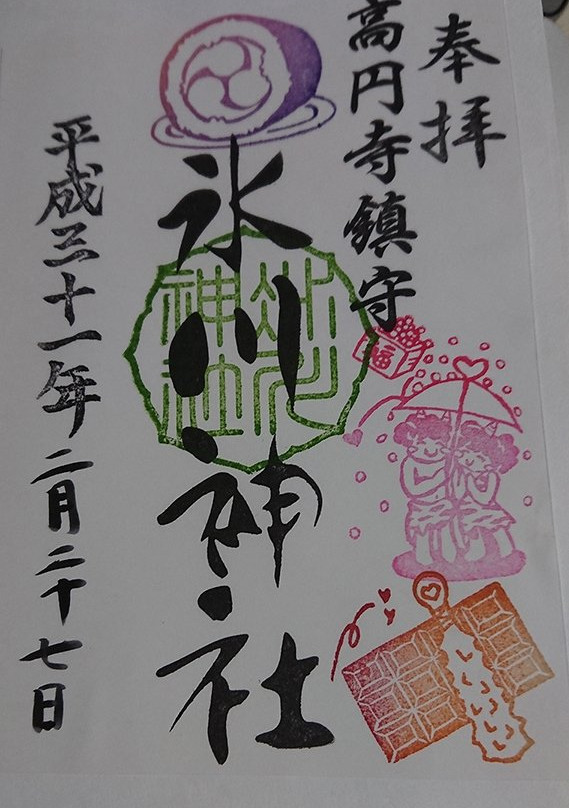 奉拝
高円寺鎮守
福
氷川神社
氷川神社
平成三十一年二月二十七日